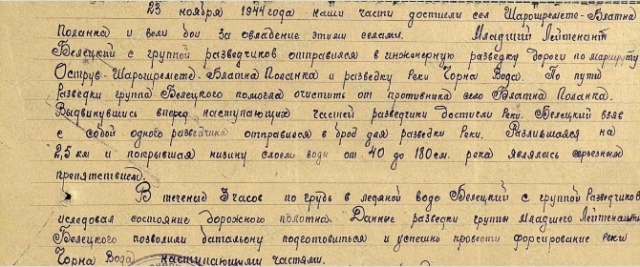 23 ноября 1944 года наши части достигли сел Шарощремете-Влатна
Поланка и вели бои за овладение этими селами. Младший Лейтенант
Белецкий с группой разведчиков отправился в инженерную разведку дороги по маршруту
Острув-Шарощремете-Влатна Поланка и разведку Реки Чорна Вода. По пути
разведки группа Белецкого помогла очистить от противника село Влатна Поланка.
Выдвинувшись вперед наступающих частей разведчики достигли Реки. Белецкий взяв
с собой одного разведчика отправился в брод для разведки Реки. Разлившаяся на
2,5 км и покрывшая низину слоем воды от 40 до 180 см. река являлась серьезным
препятствием.
В течении 3 часов по грудь в ледяной воде Белецкий с группой Разведчиков
иследовал состояние дорожного полотна. Данные разведки группы Младшего Лейтенанта
Белецкого позволили батальону подготовиться и успешно провести форсирование реки
Чорна Вода наступающими частями.